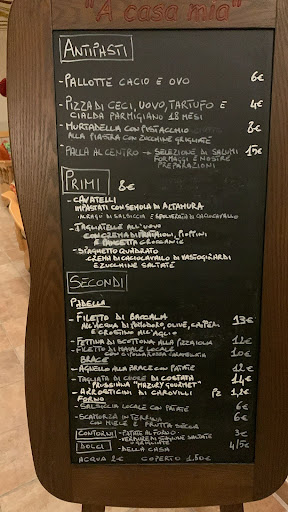 "A casa mia"
ANTIPASTI
- PALLOTTE CACIO E OVO 6€
- PIZZA DI CECI, UOVO, TARTUFO E 4€
CIALDA PARMIGIANO 18 MESI
- MURTADELLA CON PISTACCHIO 8€
ALLA PIASTRA CON ZUCCHINE GRIGLIATE
- PALLA AL CENTRO → SELEZIONE DI SALUMI 15€
FORMAGGI E NOSTRE
PREPARAZIONI
PRIMI 8€
- CAVATELLI
IMPASTATI CON SEMOLA DI ALTAMURA
AL RAGÙ DI SALSICCIA E SPOLVERATA DI CACIOCAVALLO
- TAGLIATELLE ALL'UOVO
CON CREMA DI PEPPINI
E PANCETTA CROCCANTE
- SPAGHETTO QUADRATO
CREMA DI CACIOCAVALLO DI VASTOGIRARDI
E ZUCCHINE SALTATE
SECONDI
PADELLA
- FILETTO DI BACCALÀ 13€
ALL'ACQUA DI POMODORO, OLIVE, CAPPERI
E CROSTINO ALL'AGLIO
- FETTINA DI SCOTTONA ALLA PIZZAIOLA 11€
- FILETTO DI MAIALE LOCALE 11€
CON CIPOLLA ROSSA CARAMELLATA
BRACE
- AGNELLO ALLA BRACE CON PATATE 12€
- TAGLIATA DI CUORE DI COSTATA 14€
PRUSSIANA "MAZURY GOURMET"
- ARROSTICINI DI CAROVILLI PZ 1,2€
FORNO
- SALSICCIA LOCALE CON PATATE 6€
- SCATTORZA IN TERRINA 6€
CON MIELE E FRUTTA SECCA
CONTORNI - PATATE AL FORNO 3€
- VERDURE DI STAGIONE SALTATE
- GRIGLIATE
DOLCI - DELLA CASA 4/5€
ACQUA 2€ COPERTO 1.50€